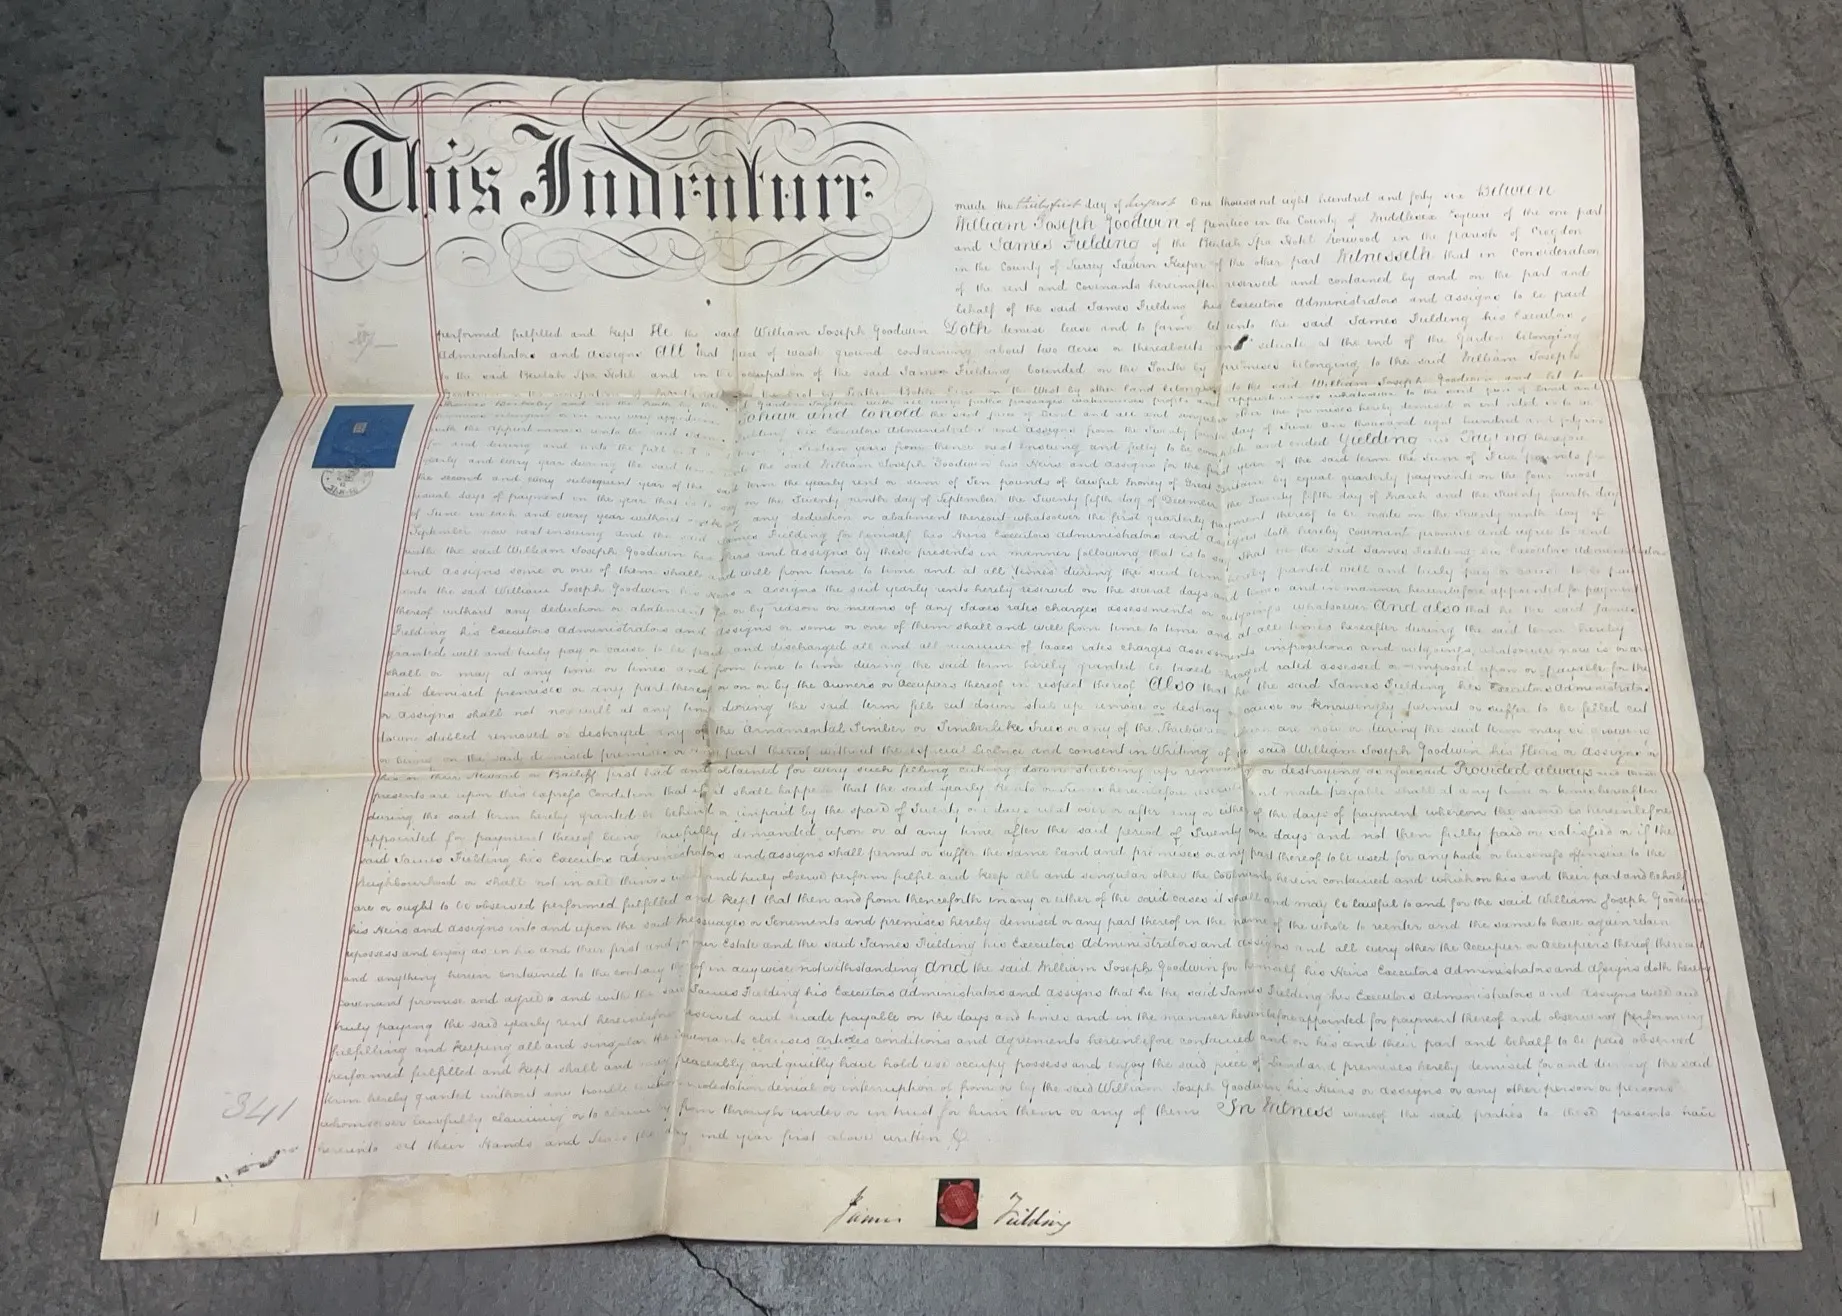 This Indenture
made the thirty first day of August One thousand eight hundred and forty six Between
William Joseph Goodwin of Pimlico in the County of Middlesex Esquire of the one part
and James Fielding of the Beulah Spa Hotel Norwood in the parish of Croydon
in the County of Surrey Tavern Keeper of the other part Witnesseth that in Consideration
of the rent and Covenants hereinafter reserved and contained by and on the part and
behalf of the said James Fielding his Executors Administrators and assigns to be paid
performed fulfilled and kept He the said William Joseph Goodwin Doth demise lease and to farm let unto the said James Fielding his Executors
Administrators and assigns All that piece of waste ground containing about two Acres or thereabouts and situate at the end of the Garden belonging
to the said Beulah Spa Hotel and in the occupation of the said James Fielding bounded on the South by premises belonging to the said William Joseph
on the West by other land belonging to the said William Joseph Goodwin and let to
To have and to hold the said piece of Land and all and singular the premises hereby demised
with the appurtenances unto the said James Fielding his Executors Administrators and assigns from the Twenty fourth day of June one thousand eight hundred and forty six
for and during and unto the full years from thence next ensuing and fully to be complete and ended Yielding and Paying therefore
yearly and every year during the said term unto the said William Joseph Goodwin his Heirs and assigns for the first year of the said term the sum of Five pounds
the second and every subsequent year of the said term the yearly rent or sum of Ten pounds of lawful Money of Great Britain by equal quarterly payments on the four most
usual days of payment in the year that is to say on the Twenty ninth day of September the Twenty fifth day of December the Twenty fifth day of March and the Twenty fourth day
of June in each and every year without making any deduction or abatement thereout whatsoever the first quarterly payment thereof to be made on the Twenty ninth day of
September now next ensuing and the said James Fielding for himself his Heirs Executors Administrators and assigns doth hereby Covenant promise and agree to and
with the said William Joseph Goodwin his Heirs and assigns by these presents in manner following that is to say That he the said James Fielding his Executors Administrators
and assigns some or one of them shall and will from time to time and at all times during the said term hereby granted well and truly pay or cause to be paid
unto the said William Joseph Goodwin his Heirs or assigns the said yearly rents hereby reserved on the several days and times and in manner hereinbefore appointed for payment
thereof without any deduction or abatement for or by reason or means of any Taxes rates charges assessments or outgoings whatsoever And also that he the said James
Fielding his Executors Administrators and assigns or some or one of them shall and will from time to time and at all times hereafter during the said term hereby
granted well and truly pay or cause to be paid and discharged all and all manner of taxes rates charges assessments impositions and outgoings whatsoever now is or are
shall or may at any time or times and from time to time during the said term hereby granted be taxed charged rated assessed or imposed upon or payable for the
said demised premises or any part thereof or on or by the owners or occupiers thereof in respect thereof Also that he the said James Fielding his Executors Administrators
or assigns shall not nor will at any time during the said term fell cut down stub up remove or destroy cause or knowingly permit or suffer to be felled cut
down stubbed removed or destroyed any of the Ornamental Timber or Timberlike Trees or any of the are now or during the said term may be growing
or being on the said demised premises or any part thereof without the special Licence and consent in Writing of the said William Joseph Goodwin his Heirs or Assigns or
his or their Steward or Bailiff first had and obtained for every such felling cutting down stubbing up removing or destroying as aforesaid Provided always and these
presents are upon this express Condition that if it shall happen that the said yearly Rents or Sums hereinbefore made payable shall at any time or times hereafter
during the said term hereby granted be behind or unpaid by the space of Twenty one days next over or after any or either of the days of payment whereon the same is hereinbefore
appointed for payment thereof being lawfully demanded upon or at any time after the said period of Twenty one days and not then fully paid or satisfied or if the
said James Fielding his Executors Administrators and assigns shall permit or suffer the same land and premises or any part thereof to be used for any trade or business offensive to the
Neighbourhood or shall not in all things well and truly observe perform fulfil and keep all and singular other the Covenants herein contained and which on his and their part and behalf
are or ought to be observed performed fulfilled and kept that then and from thenceforth in any or either of the said cases it shall and may be lawful to and for the said William Joseph Goodwin
his Heirs and assigns into and upon the said Messuages or Tenements and premises hereby demised or any part thereof in the name of the whole to reenter and the same to have again retain
repossess and enjoy as in his and their first and former Estate and the said James Fielding his Executors Administrators and assigns and all every other the Occupier or Occupiers thereof
and anything herein contained to the contrary thereof in any wise notwithstanding And the said William Joseph Goodwin for himself his Heirs Executors Administrators and assigns doth hereby
covenant promise and agree to and with the said James Fielding his Executors Administrators and assigns that he the said James Fielding his Executors Administrators and assigns well and
truly paying the said yearly rent hereinbefore reserved and made payable on the days and times and in the manner hereinbefore appointed for payment thereof and observing performing
fulfilling and keeping all and singular the Covenants clauses articles conditions and agreements hereinbefore contained and on his and their part and behalf to be paid observed
performed fulfilled and kept shall and may peaceably and quietly have hold use occupy possess and enjoy the said piece of Land and premises hereby demised for and during the said
term hereby granted without any trouble molestation denial or interruption of from or by the said William Joseph Goodwin his Heirs or assigns or any other person or persons
whomsoever lawfully claiming or to claim by from through under or in trust for him them or any of them In Witness whereof the said parties to these presents have
hereunto set their Hands and Seals the day and year first above written
341
James Fielding